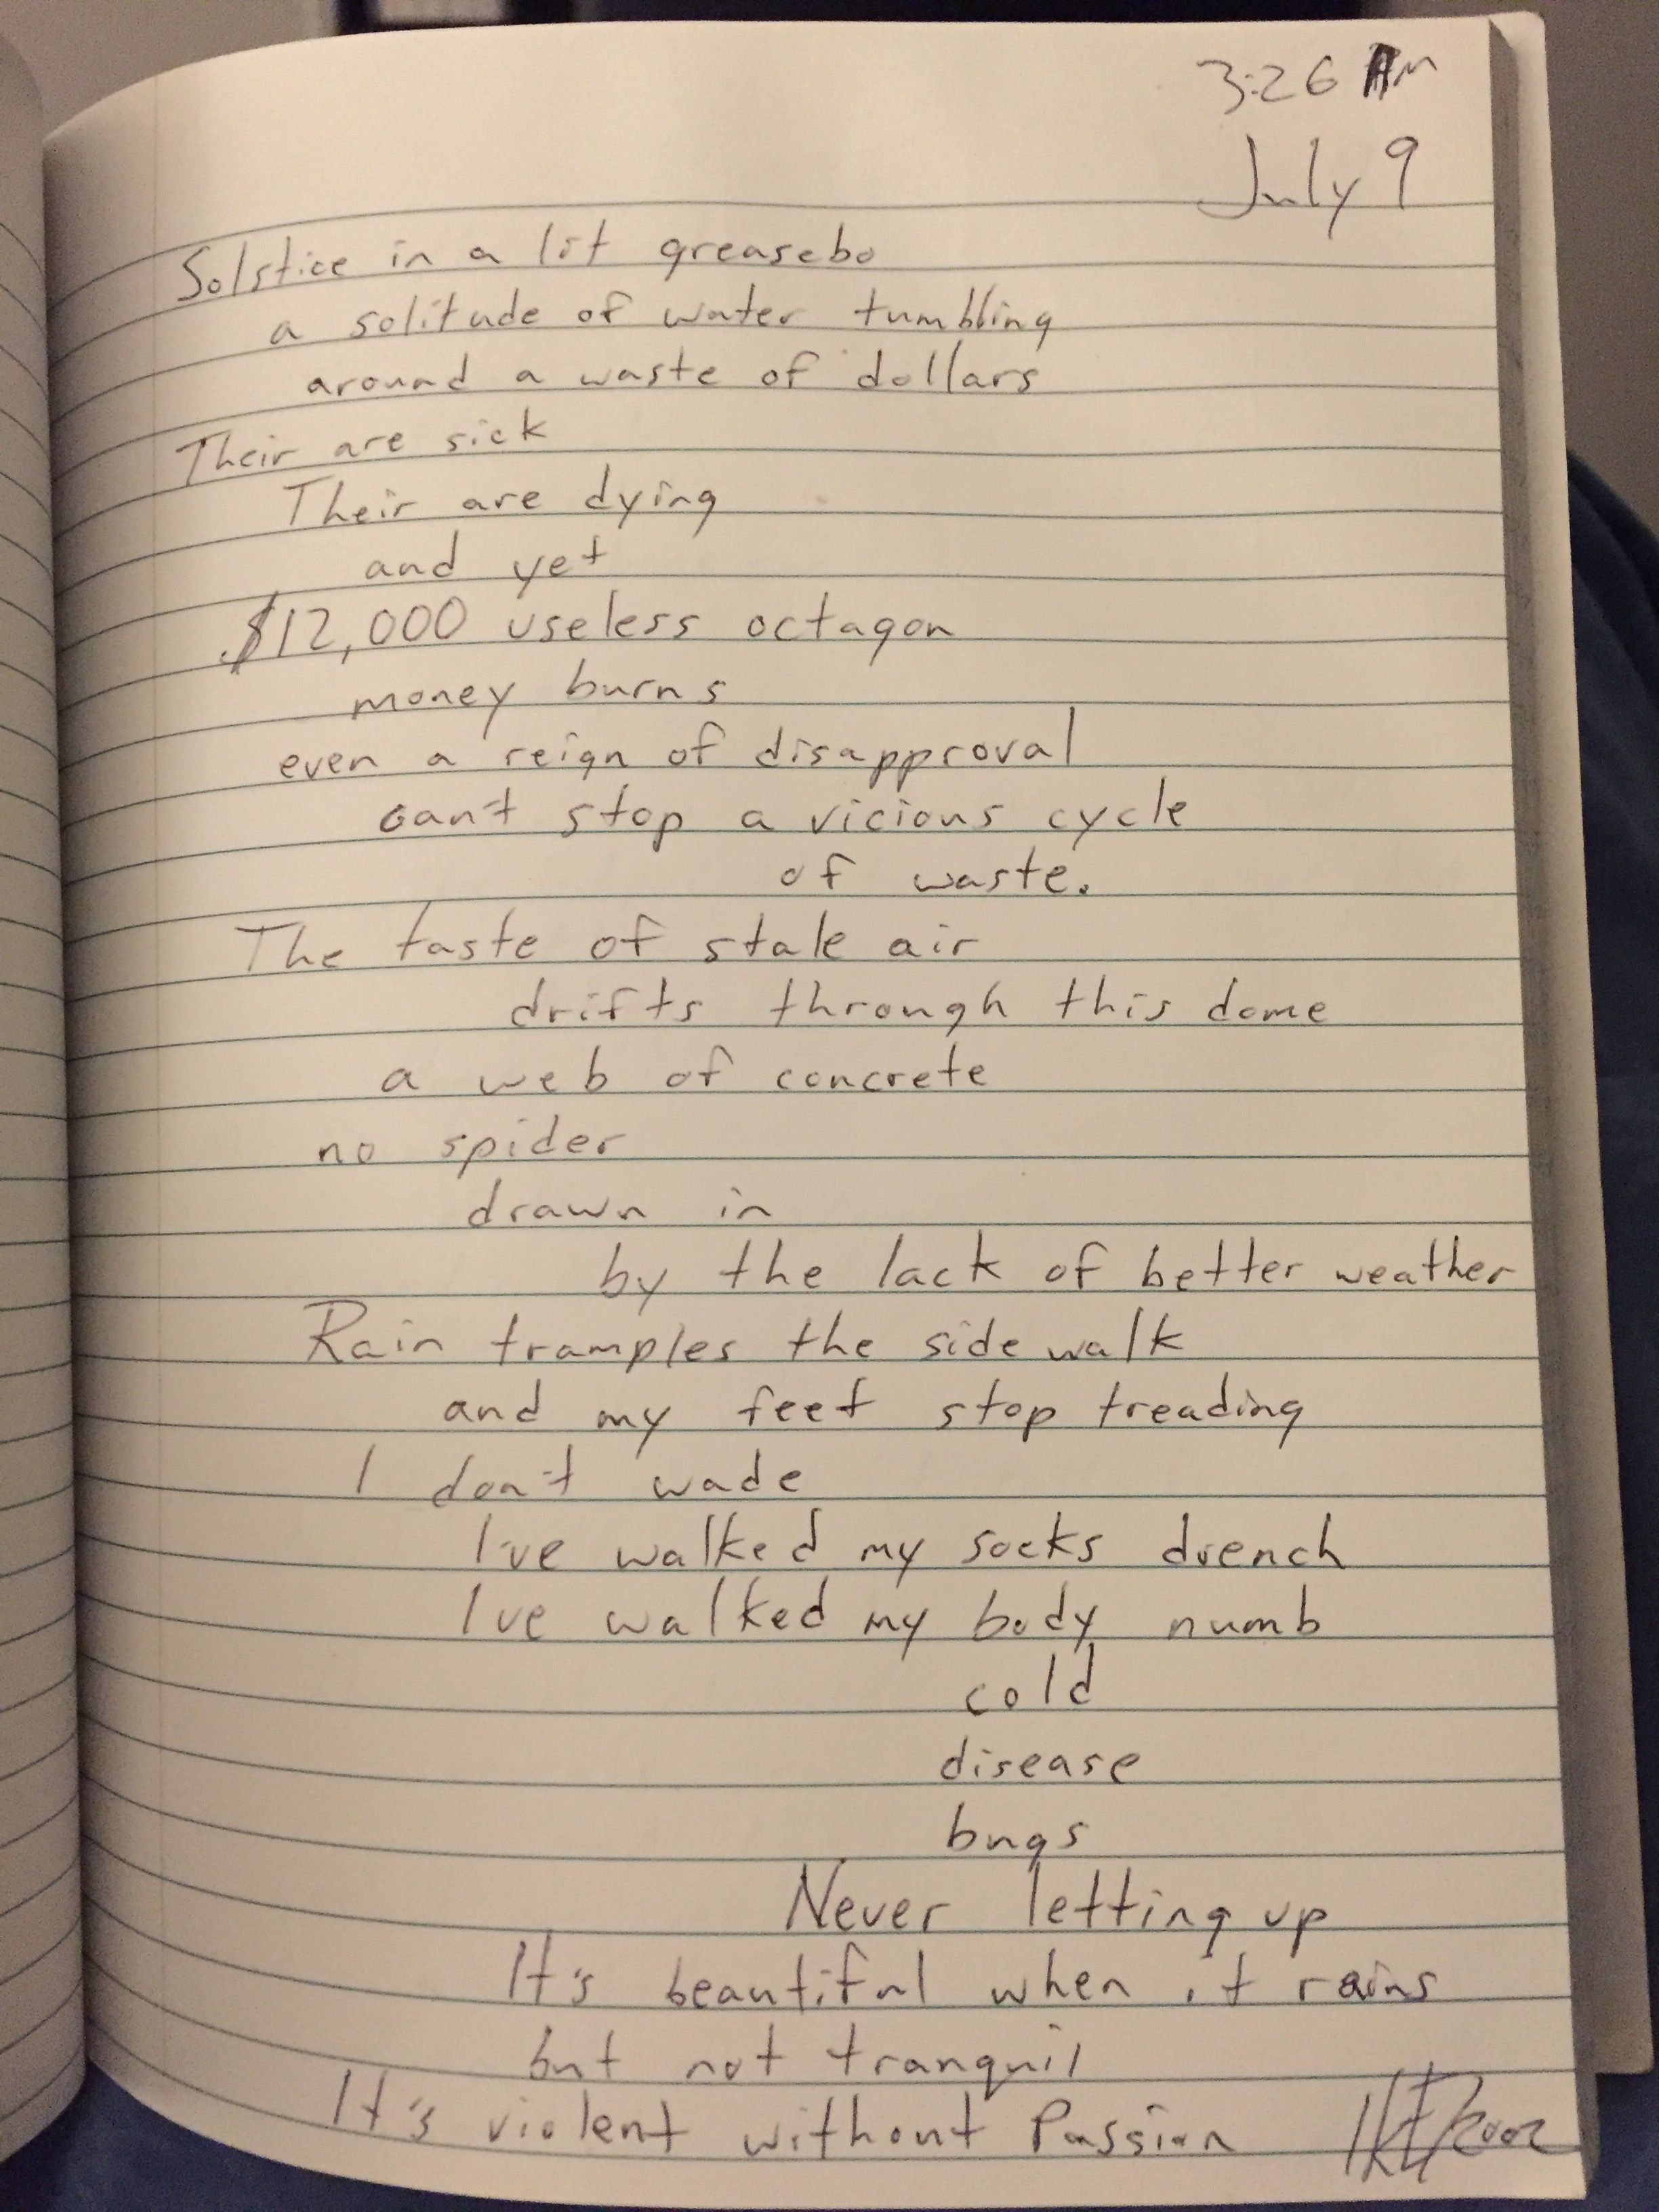 3:26 AM
July 9
Solstice in a lit greasebo
a solitude of water tumbling
around a waste of dollars
Their are sick
Their are dying
and yet
$12,000 useless octagon
money burns
even a reign of disapproval
can't stop a vicious cycle
of waste.
The taste of stale air
drifts through this dome
a web of concrete
no spider
drawn in
by the lack of better weather
Rain tramples the side walk
and my feet stop treading
I don't wade
I've walked my socks drench
I've walked my body numb
cold
disease
bugs
Never letting up
It's beautiful when it rains
but not tranquil
It's violent without Passion